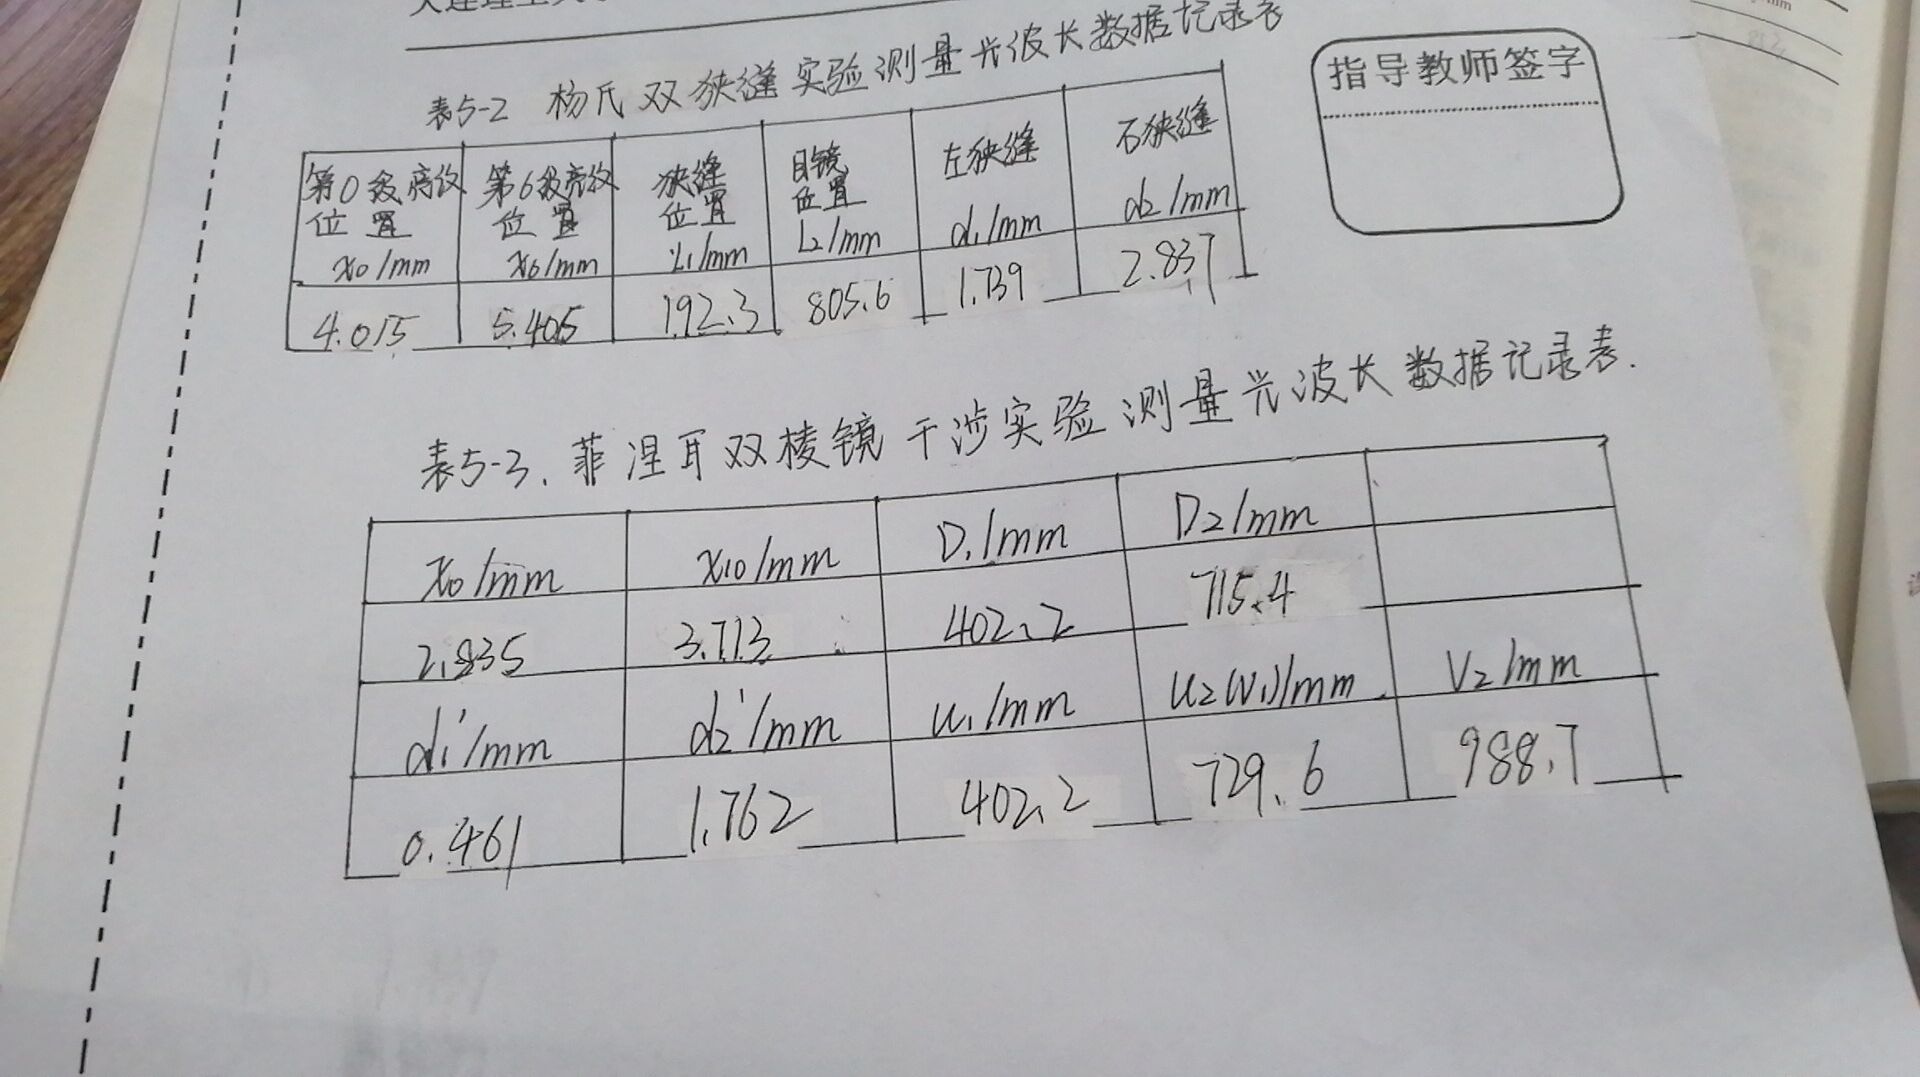 表5-2 杨氏双狭缝实验测量光波长数据记录表
指导教师签字
第0级亮纹位置 x0/mm 第6级亮纹位置 x6/mm 狭缝位置 L1/mm 目镜位置 L2/mm 左狭缝 d1/mm 右狭缝 d2/mm
4.015 5.405 192.3 805.6 1.739 2.837
表5-3. 菲涅耳双棱镜干涉实验测量光波长数据记录表.
x0/mm x10/mm D1/mm D2/mm
2.835 3.713 402.2 715.4
d1'/mm d2'/mm u1/mm u2(v1)/mm V2/mm
0.461 1.762 402.2 729.6 988.7